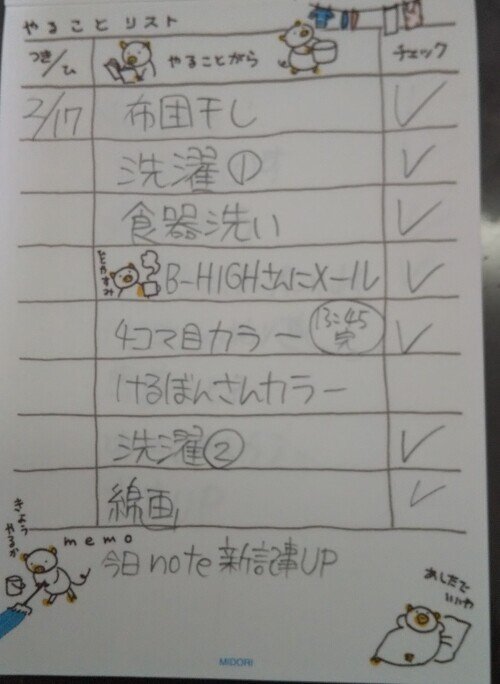 やること リスト
つき/ひ やることがら チェック
2/17 布団干し ✓
洗濯① ✓
食器洗い ✓
B-HIGHさんにメール ✓
4コマ目カラー 13:45完 ✓
けるぽんさんカラー
洗濯② ✓
線画 ✓
きょう
やるか
memo
今日note新記事UP
あしたで
いいや
MIDORI